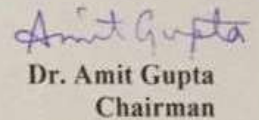 Amit Gupta
Dr. Amit Gupta
Chairman